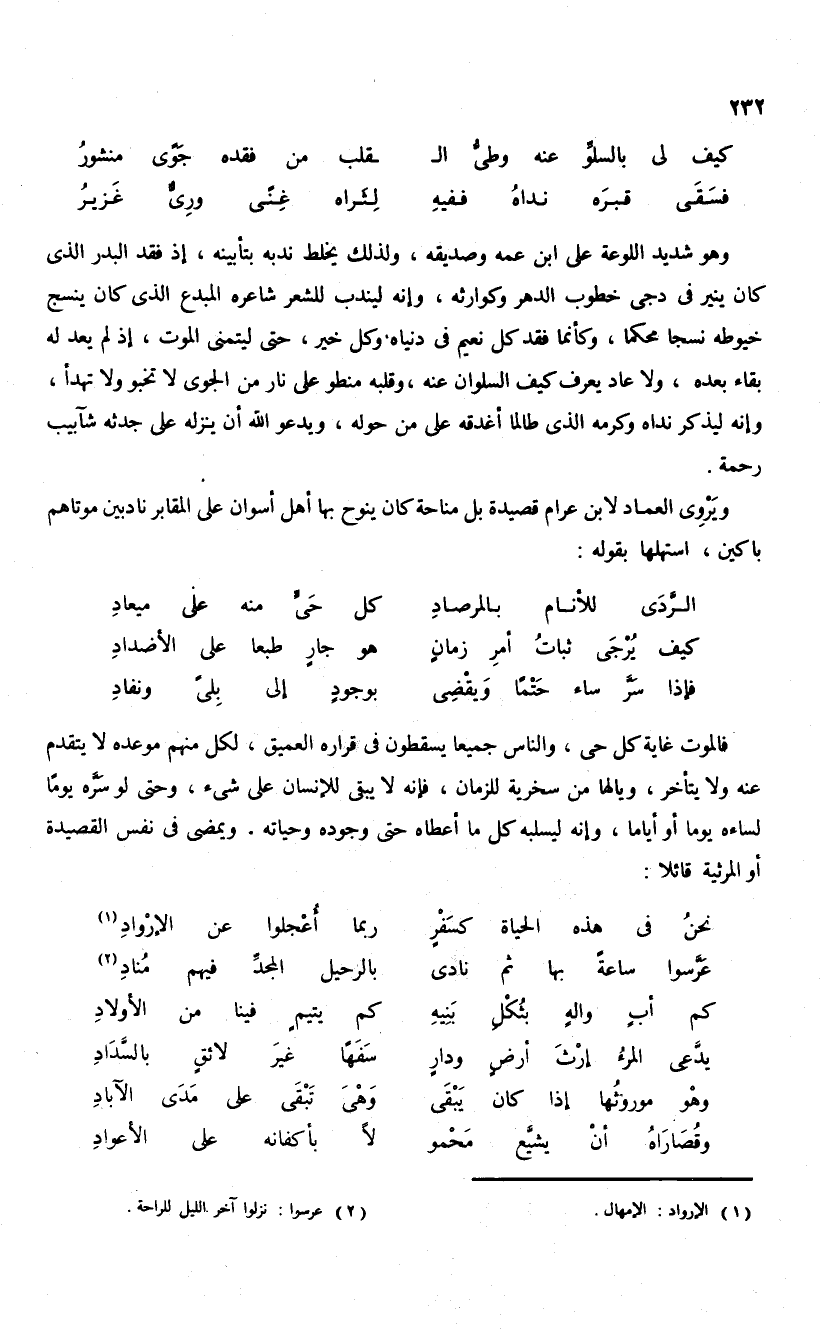 ٢٣٢
كيف لى بالسلوِّ عنه وطىُّ الـ ـقلب من فقده جَوًى منشورُ
فسَقَى قبرَه نداهُ ففيهِ لِثَراه غِنًى ورِىٌّ غَزيرُ
وهو شديد اللوعة على ابن عمه وصديقه ، ولذلك يخلط ندبه بتأبينه ، إذ فقد البدر الذى
كان ينير فى دجى خطوب الدهر وكوارثه ، وإنه ليندب للشعر شاعره المبدع الذى كان ينسج
خيوطه نسجا محكما ، وكأنما فقد كل نعيم فى دنياه وكل خير ، حتى ليتمنى الموت ، إذ لم يعد له
بقاء بعده ، ولا عاد يعرف كيف السلوان عنه ، وقلبه منطو على نار من الجوى لا تخبو ولا تهدأ ،
وإنه ليذكر نداه وكرمه الذى طالما أغدقه على من حوله ، ويدعو الله أن ينزله على جدثه شآبيب
رحمة .
ويَرْوِى العماد لابن عرام قصيدة بل مناحة كان ينوح بها أهل أسوان على المقابر نادبين موتاهم
باكين ، استهلها بقوله :
الرَّدَى للأنام بالمرصادِ كل حَىٍّ منه على ميعادِ
كيف يُرْجَى ثباتُ أمرِ زمانٍ هو جارٍ طبعا على الأضدادِ
فإذا سَرَّ ساء حَتْمًا وَيقْضِى بوجودٍ إلى بِلىً ونفادِ
فالموت غاية كل حى ، والناس جميعا يسقطون فى قراره العميق ، لكل منهم موعده لا يتقدم
عنه ولا يتأخر ، ويالها من سخرية للزمان ، فإنه لا يبقى للإنسان على شىء ، وحتى لو سَرَّه يومًا
لساءه يوما أو أياما ، وإنه ليسلبه كل ما أعطاه حتى وجوده وحياته . ويمضى فى نفس القصيدة
أو المرثية قائلا :
نحنُ فى هذه الحياة كسَفْرٍ ربما أُعْجلوا عن الإرْوادِ (١)
عَرَّسوا ساعةً بها ثم نادى بالرحيل المجدِّ فيهم مُنادِ (٢)
كم أبٍ والهٍ بثُكْلِ بَنِيهِ كم يتيمٍ فينا من الأولادِ
يدَّعى المرءُ إرْثَ أرضٍ ودارٍ سَفَهًا غيرَ لائقٍ بالسَّدَادِ
وهْو موروثُها إذا كان يَبْقَى وَهْىَ تَبْقَى على مَدَى الآبادِ
وقُصَارَاهُ أنْ يشيَّع مَحْمو لاً بأكفانه على الأعوادِ
(١) الإرواد : الإمهال .
(٢) عرسوا : نزلوا آخر الليل للراحة .